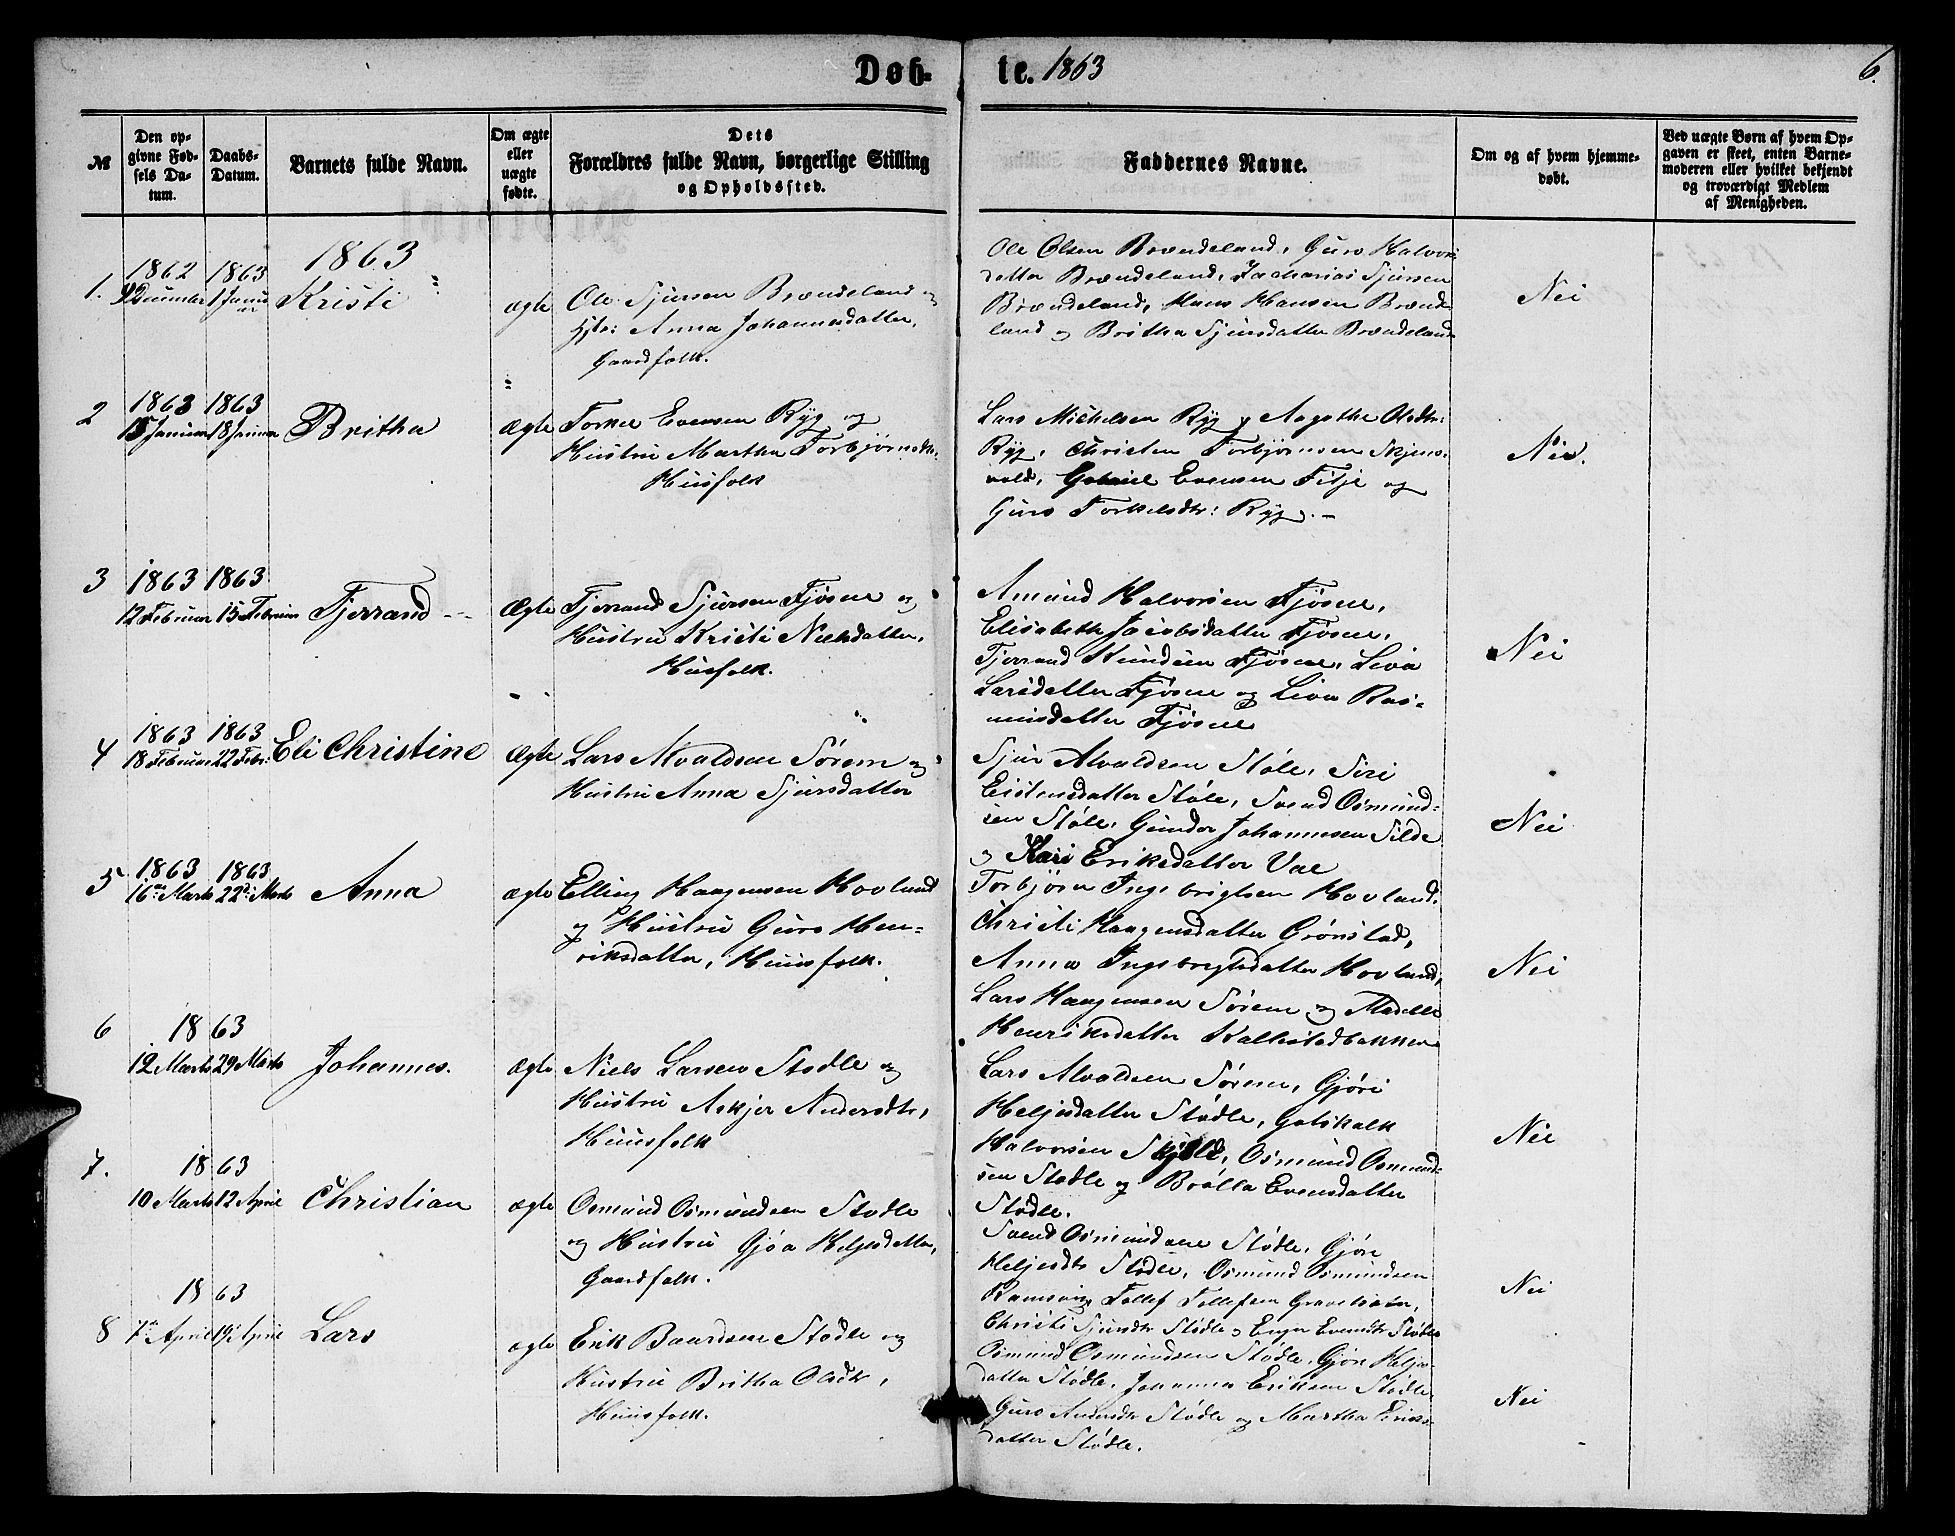 Døb- te. 1863 6.
№
Den op-
givne Fød-
sels Da-
tum.
Daabs-
Datum.
Barnets fulde Navn.
Om ægte
eller
uægte
fødte.
Dets
Forældres fulde Navn, borgerlige Stilling
og Opholdssted.
Faddernes Navne.
Om og af hvem hjemme-
døbt.
Ved uægte Børn af hvem Op-
gaven er skeet, enten Barne-
moderen eller hvilket bekjendt
og troværdigt Medlem
af Menigheden.
1863
1.
1862 1863
December 1 Janu
ar
Kristi
ægte
Ole Sjursen Brændeland og
Anna Johannesdatter,
Gaardfolk.
Ole Olsen Brændeland, Guro Halvors
datter Brændeland, Zacharias Sjursen
Brændeland, Hans Hansen Brænde
land og Britha Sjursdatter Brændeland
Nei
2
1863 1863
15 Januar 18 Januar
Britha
ægte
Torkel Evensen Ryg og
Hustru Martha Torbjørnsdtr.
Husfolk
Lars Michelsen Ryg, Aagothe Olsdtr:
Ryg, Christen Torbjørnsen Skjens-
vold, Gabriel Evensen Fitje og
Guro Torkelsdtr: Ryg. -
Nei.
3
1863 1863
12 Februar 15 Februar
Tjerrand
Ægte
Tjerrand Sjursen Fjøsne og
Hustru Kristi Nielsdatter,
Husfolk.
Amund Halvorsen Fjøsne,
Elisabeth Jacobsdatter Fjøsne,
Tjerrand Knudsen Fjøsne, Liva
Larsdatter Fjøsne og Liva Ras-
musdatter Fjøsne
Nei
4
1863 1863
18 Februar 22 Febr:
Eli Christine
Ægte
Lars Alvaldsen Sørem og
Hustru Anna Sjursdatter
Sjur Alvaldsen Støle, Siri
Eistensdatter Støle, Svend Osmund-
sen Støle, Gunder Johannesen Silde
og Kari Eriksdatter Vae
Nei
5
1863 1863
16de Marts 22de Marts
Anna
ægte
Elling Haagensen Hovland
og Hustru Guro Hen-
riksdatter, Huusfolk.
Torbjørn Ingebrigtsen Hovland,
Christi Haagensdatter Grønstad,
Anna Ingebrigtsdatter Hovland,
Lars Haagensen Sørem og Madelle
Henriksdatter Kallestadbakken
Nei
6
1863
12 Marts 29 Marts
Johannes.
Ægte
Niels Larsen Stødle og
Hustru Askjer Andersdtr,
Huusfolk
Lars Alvaldsen Sørem, Gjøri
Heljesdatter Stødle, Gotskalk
Halvorsen Skjold, Osmund Osmund-
sen Stødle og Brølla Evensdatter
Stødle.
Nei
7.
1863
10 Marts 12 April
Christian
ægte
Osmund Osmundsen Stødle
og Hustru Gjøa Heljesdatter,
Gaardfolk.
Svend Osmundsen Stødle, Gjøri
Heljesdtr Stødle, Osmund Osmundsen
Ramsvig, Tollef Tollefsen
Christi Sjursdtr Stødle og Evensdtr Stødle
Nei
8
1863
7de April 19de April
Lars
ægte
Erik Baardsen Stødle og
Hustru Britha Olsdtr,
Huusfolk.
Osmund Osmundsen Stødle, Gjøri Heljes-
datter Stødle, Johannes Eriksen Stødle,
Guro Andersdtr Stødle og Martha Eriks-
datter Stødle.
Nei